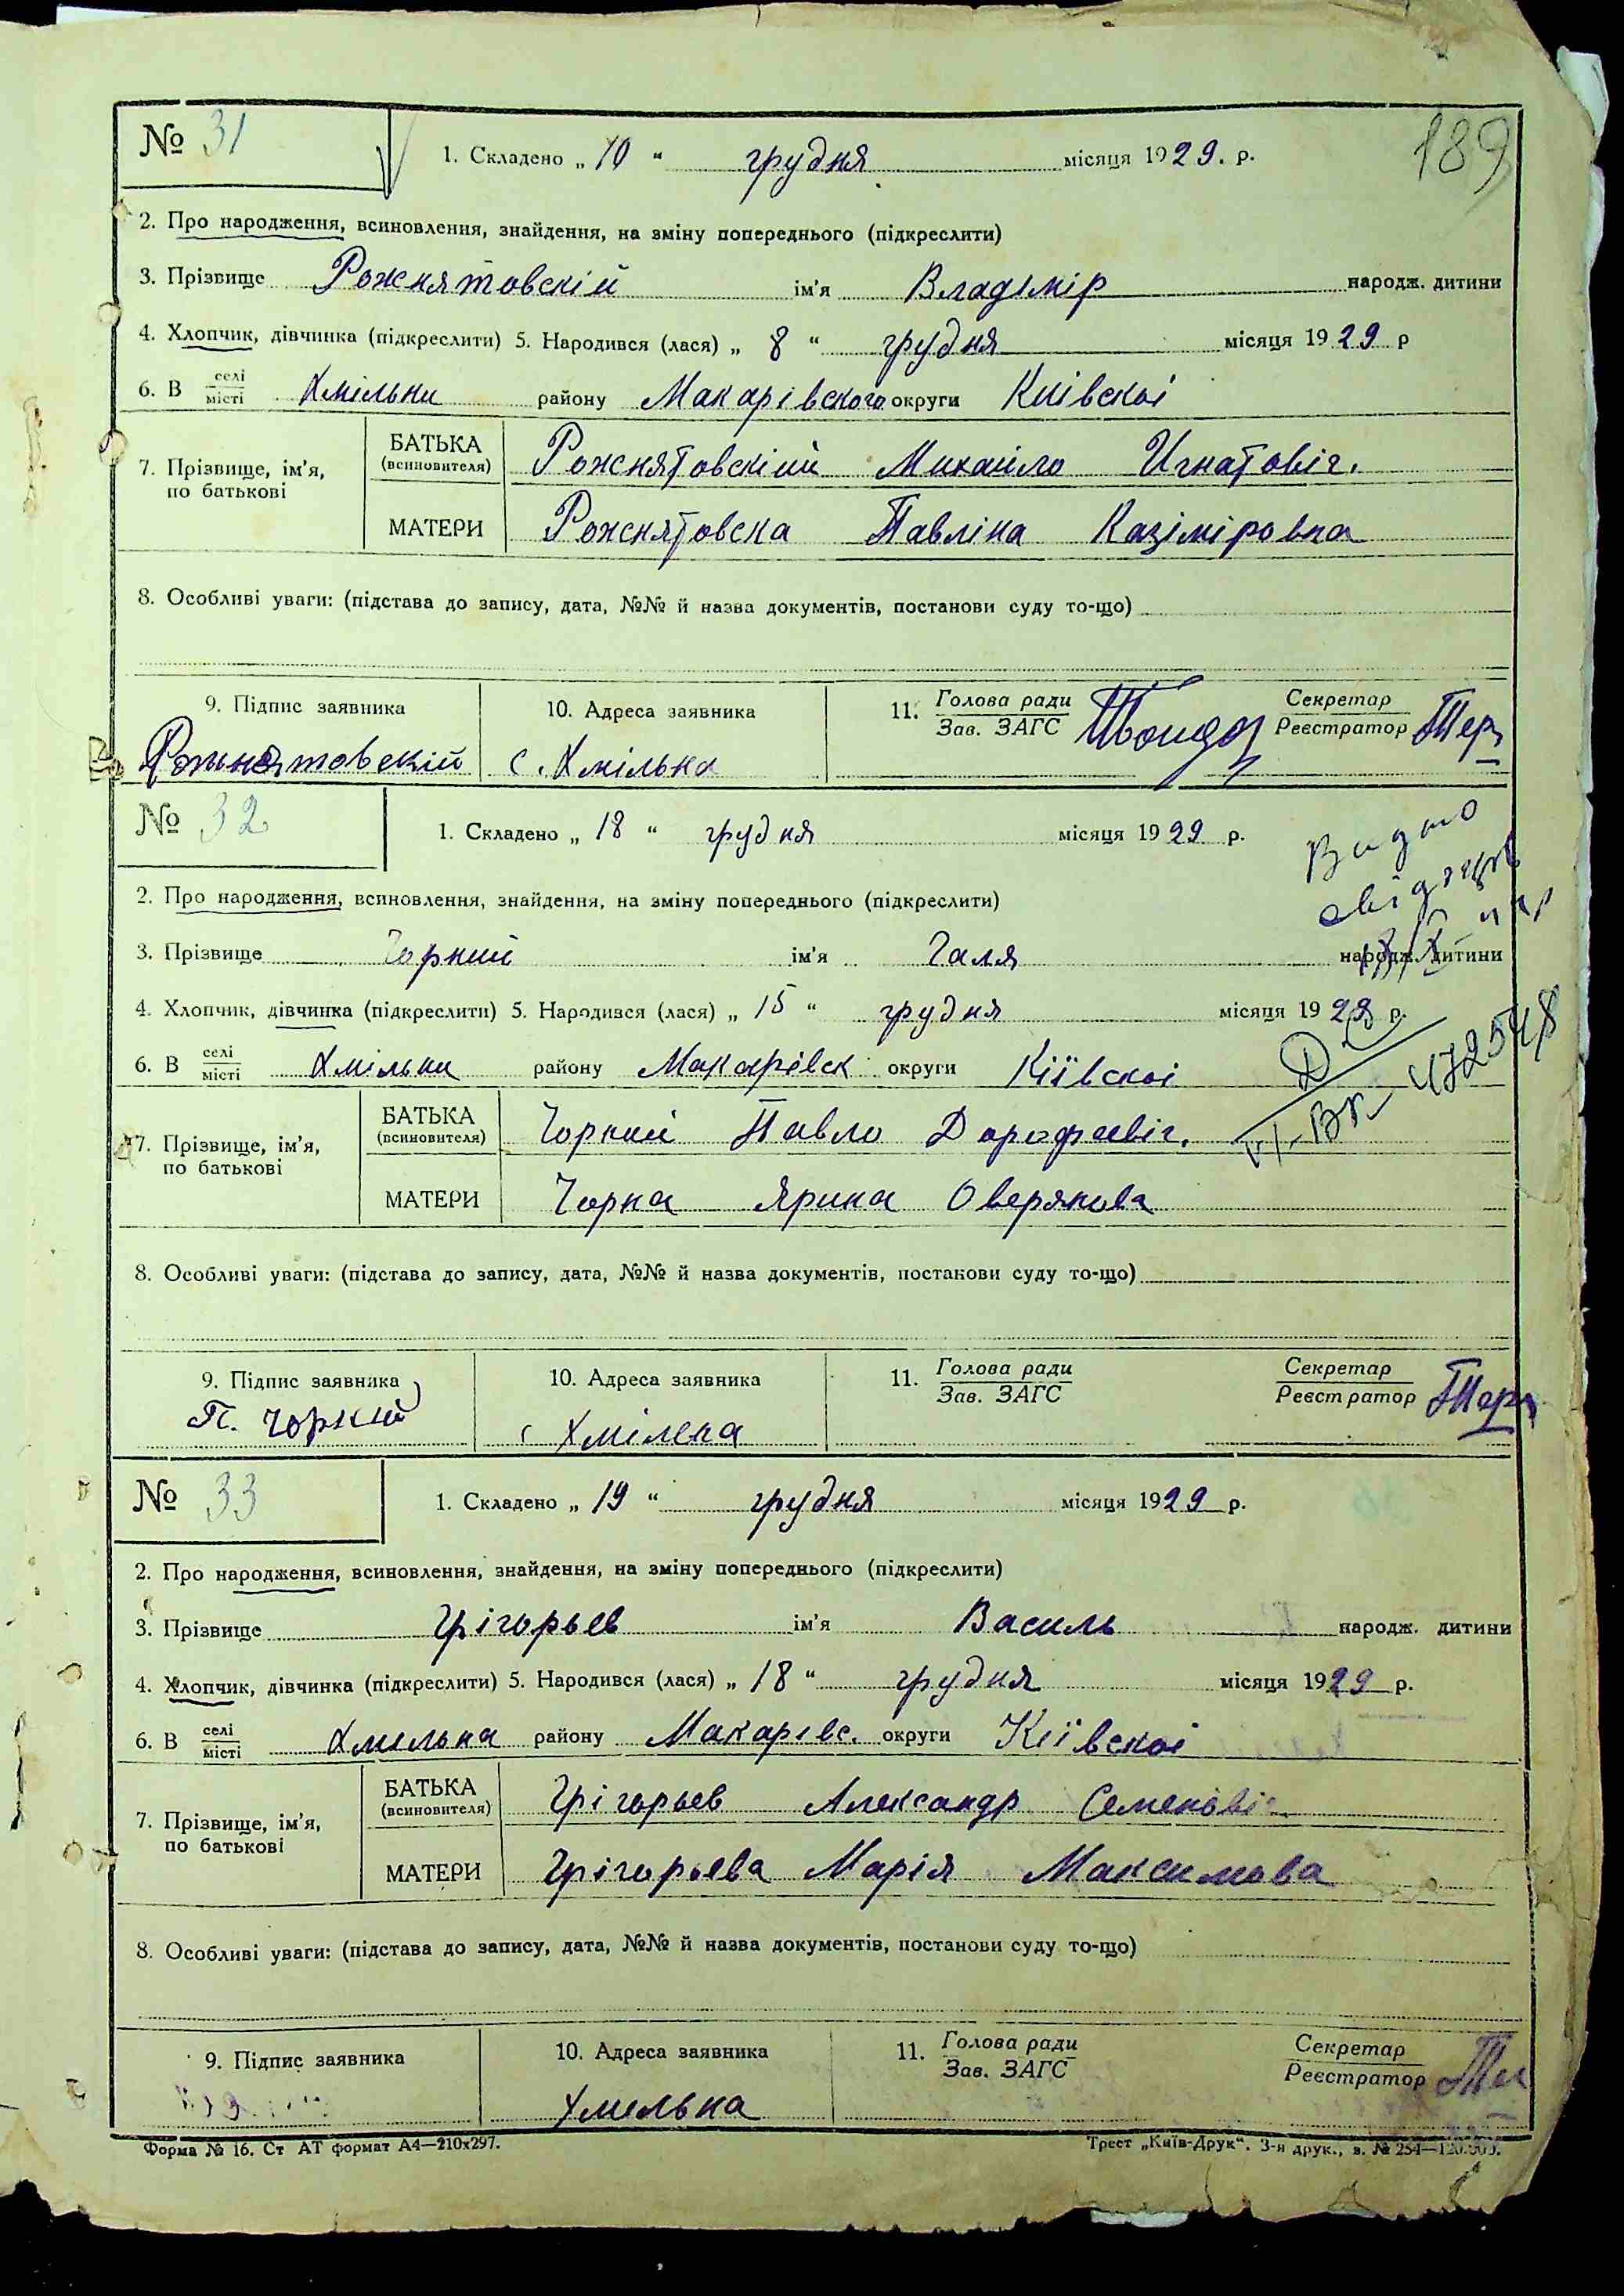 189
№ 31
1. Складено „ 10 “ грудня місяця 1929. р.
2. Про народження, всиновлення, знайдення, на зміну попереднього (підкреслити)
3. Прізвище Рожнятовскій ім'я Владімір народж. дитини
4. Хлопчик, дівчинка (підкреслити) 5. Народився (лася) „ 8 “ грудня місяця 1929 р
6. В селі місті Хмільни району Макарівского округи Київскоі
7. Прізвище, ім'я, по батькові
БАТЬКА (всиновителя) Рожнятовскіий Михайло Игнатовіч.
МАТЕРИ Рожнятовска Павліна Казіміровна
8. Особливі уваги: (підстава до запису, дата, №№ й назва документів, постанови суду то-що)
9. Підпис заявника 10. Адреса заявника 11. Голова ради Зав. ЗАГС Секретар Реєстратор
Рожнятовскій с. Хмільна
№ 32
1. Складено „ 18 “ грудня місяця 1929 р.
Видано
2. Про народження, всиновлення, знайдення, на зміну попереднього (підкреслити)
3. Прізвище Чорний ім'я Галя народж. дитини
4. Хлопчик, дівчинка (підкреслити) 5. Народився (лася) „ 15 “ грудня місяця 1929 р.
6. В селі місті Хмільни району Макарівск округи Кіївскоі
7. Прізвище, ім'я, по батькові
БАТЬКА (всиновителя) Чорний Павло Дорофеевіч.
МАТЕРИ Чорна Ярина Оверянова
8. Особливі уваги: (підстава до запису, дата, №№ й назва документів, постанови суду то-що)
9. Підпис заявника 10. Адреса заявника 11. Голова ради Зав. ЗАГС Секретар Реєстратор
П. Чорний с Хмілена
№ 33
1. Складено „ 19 “ грудня місяця 1929 р.
2. Про народження, всиновлення, знайдення, на зміну попереднього (підкреслити)
3. Прізвище Грігорьев ім'я Василь народж. дитини
4. Хлопчик, дівчинка (підкреслити) 5. Народився (лася) „ 18 “ грудня місяця 1929 р.
6. В селі місті Хмильна району Макарівс. округи Кіївскоі
7. Прізвище, ім'я, по батькові
БАТЬКА (всиновителя) Грігорьев Александр Семеновіч
МАТЕРИ Грігорьева Марія Максимова
8. Особливі уваги: (підстава до запису, дата, №№ й назва документів, постанови суду то-що)
9. Підпис заявника 10. Адреса заявника 11. Голова ради Зав. ЗАГС Секретар Реєстратор
Хмельна
Форма № 16. Ст АТ формат А4—210х297. Трест „Київ-Друк“. 3-я друк., з. № 254—120.000.